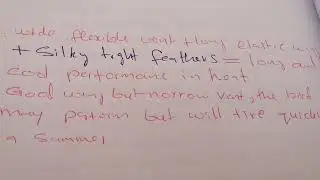 wide flexible vent + long elastic wing
+ Silky tight feathers = long and
Good performance in heat
Good wing but norrow vent, the bird
may perform but will tire quickl
in Summer